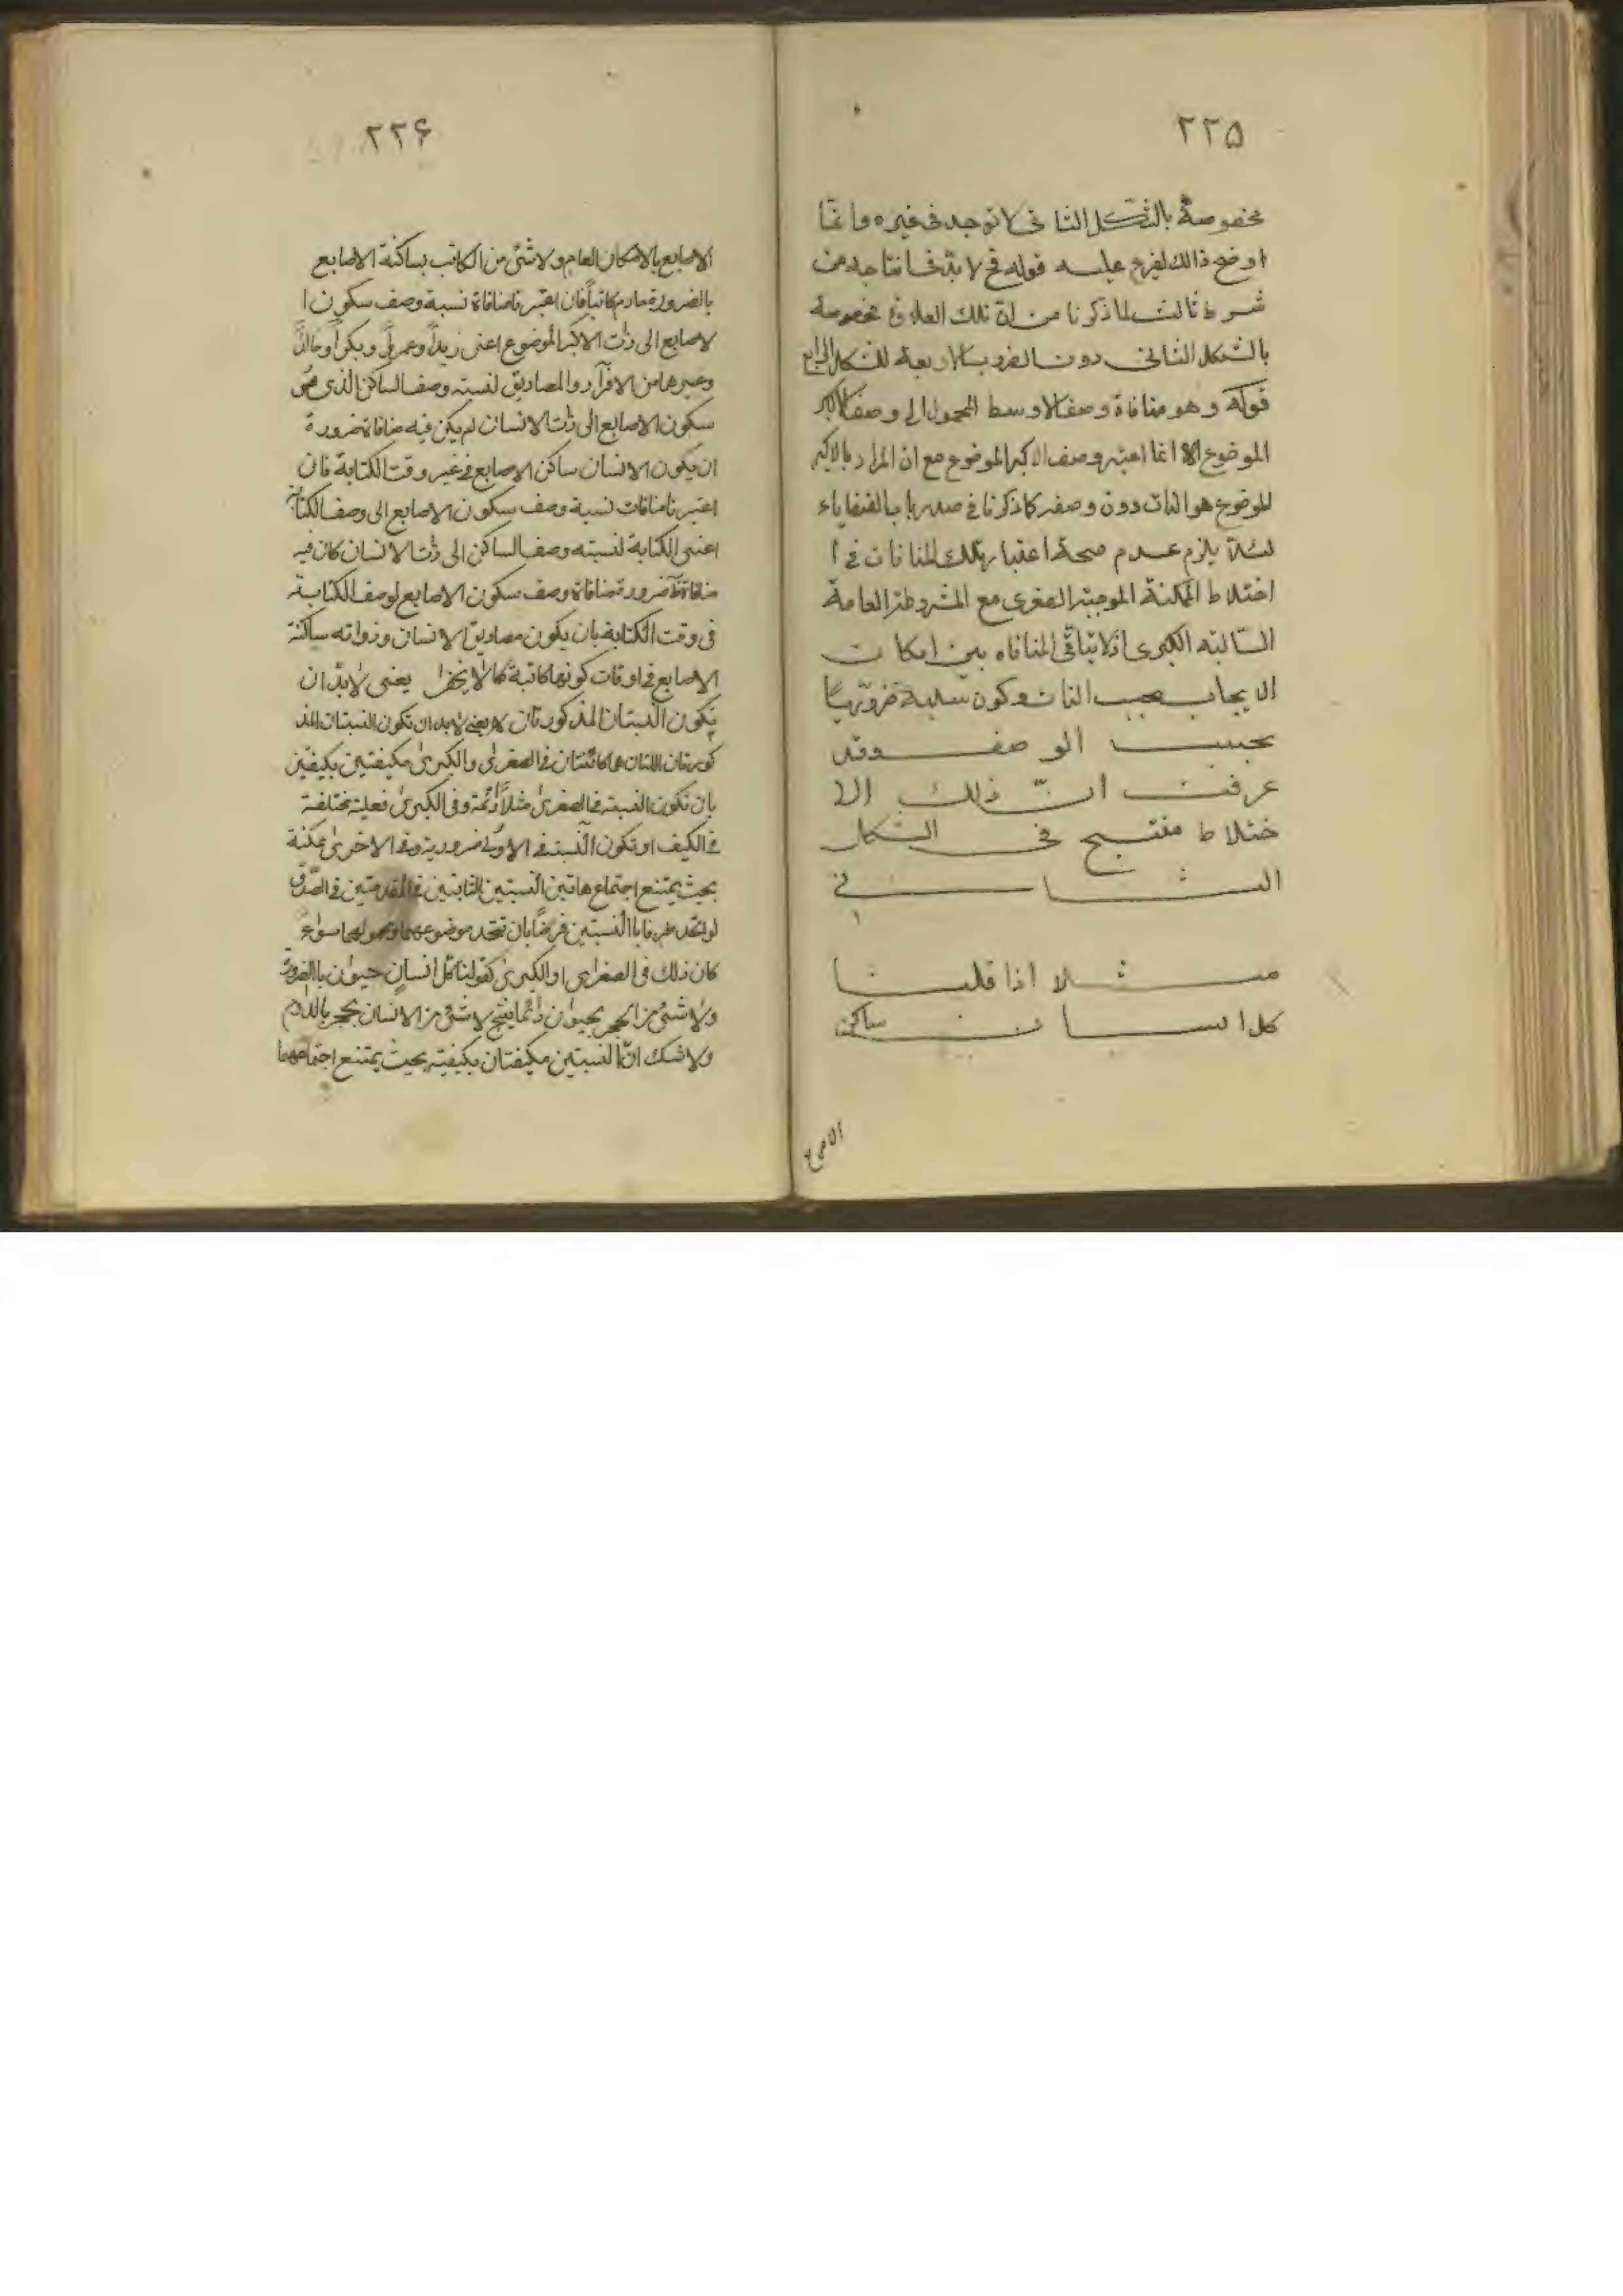 ٢٢۵
مخصوصة بالشكل الثا نى لا توجد فى غيره وانمّا
اوضح ذالك ليفرع عليه قوله فح لا بدّ فى انتاجه من
شرط ثالث لما ذكرنا من انّ تلك العلاوة مخصوصة
بالشكل الثانى دون الضروب الاربعة للشكل الرابع
قوله وهو منافاة وصف الاوسط المحمول الى وصف الاكبر
الموضوع الا انما اعتبر وصف الاكبر الموضوع مع ان المراد بالاكبر
الموضوع هو الذات دون وصفه كما ذكرنا فى صدر باب القضاياء
لئلاّ يلزم عدم صحة اعتبار تلك المنافات فى ا
اختلاط الممكنة الموجبة الصغرى مع المشروطة العامة
السّالبة الكبرى اذ لا يتاقّى المنافاه بين امكان
الايجاب بحسب الذات وكون سلبه ضروريّاً
بحسب الوصف وقد
عرفت انّ ذلك الا
ختلاط منتج فى الشكل
الثانى
مثلا اذا قلنا
كل انسان ساكن
الاصابع
٢٢۶
الاصابع بالامكان العام ولا شئ من الكاتب بساكنة الاصابع
بالضرورة مادام كاتباً فان اعتبرنا منافاة نسبة وصف سكون ا
لاصابع الى ذات الاكبر الموضوع اعنى زيداً وعمرواً وبكراً وخالداً
وغيرها من الافراد والمصاديق لنسبته وصف الساكن الذى هى
سكون الاصابع الى ذات الانسان لم يكن فيه منافاة ضرورة
ان يكون الانسان ساكن الاصابع فى غير وقت الكتابة فان
اعتبرنا منافات نسبة وصف سكون الاصابع الى وصف الكتابة
اعنى الكتابة لنسبته وصف الساكن الى ذات الانسان كان فيه
منافاة ضرورة منافاة وصف سكون الاصابع لوصف الكتابة
فى وقت الكتابة بان يكون مصاديق الانسان وذواته ساكنة
الاصابع فى اوقات كونها كاتبة كما لا يخفى يعنى لا بدّ ان
تكون النسبتان المذكورتان لا يعنى لابد ان تكون النسبتان المذ
كورتان اللتان هما كائنتان فى الصغرى والكبرى مكيفتين بكيفيتين
بان تكون النسبة فى الصغرى مثلاً دائمة وفى الكبرى فعلية مختلفة
فى الكيف او تكون النسبة فى الاولى ضرورية وفى الاخرى ممكنة
بحيث يمتنع اجتماع هاتين النسبتين الثابتين فى المقدمتين فى الصّدق
لو اتّحد طرفا با النسبتين فرضاً بان تتحد موضوعهما ومحمولهما سواء
كان ذلك فى الصغرى او الكبرى كقولنا كل انسان حيوان باالضرورة
ولا شئ من الحجر بحيوان دائما ينتج لا شئ من الانسان بحجر بالدوام
ولا شك انّ النسبتين مكيفتان بكيفية بحيث يمتنع اجتماعهما